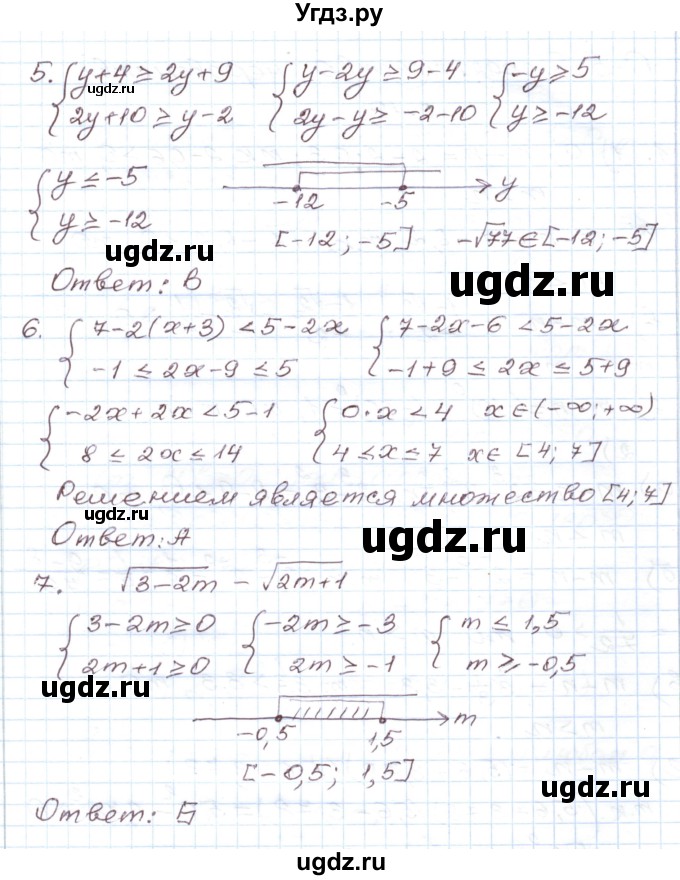 Угдз.ру
5. { y+4 ≥ 2y+9 { y-2y ≥ 9-4 { -y ≥ 5
{ 2y+10 ≥ y-2 { 2y-y ≥ -2-10 { y ≥ -12
ugdz.ru
{ y ≤ -5
{ y ≥ -12
-12 -5 y
[-12; -5] -√77 ∈ [-12; -5]
ugdz.ru
Ответ: В
ugdz.ru
6. { 7-2(x+3) < 5-2x { 7-2x-6 < 5-2x
{ -1 ≤ 2x-9 ≤ 5 { -1+9 ≤ 2x ≤ 5+9
{ -2x+2x < 5-1 { 0·x < 4 x∈(-∞;+∞)
{ 8 ≤ 2x ≤ 14 { 4 ≤ x ≤ 7 x∈ [4; 7]
Решением является множество [4; 7]
ugdz.ru
Ответ: А
ugdz.ru
7. √3-2m - √2m+1
{ 3-2m ≥ 0 { -2m ≥ -3 { m ≤ 1,5
{ 2m+1 ≥ 0 { 2m ≥ -1 { m ≥ -0,5
ugdz.ru
-0,5 1,5 m
[-0,5; 1,5]
ugdz.ru
Ответ: Б
ugdz.ru